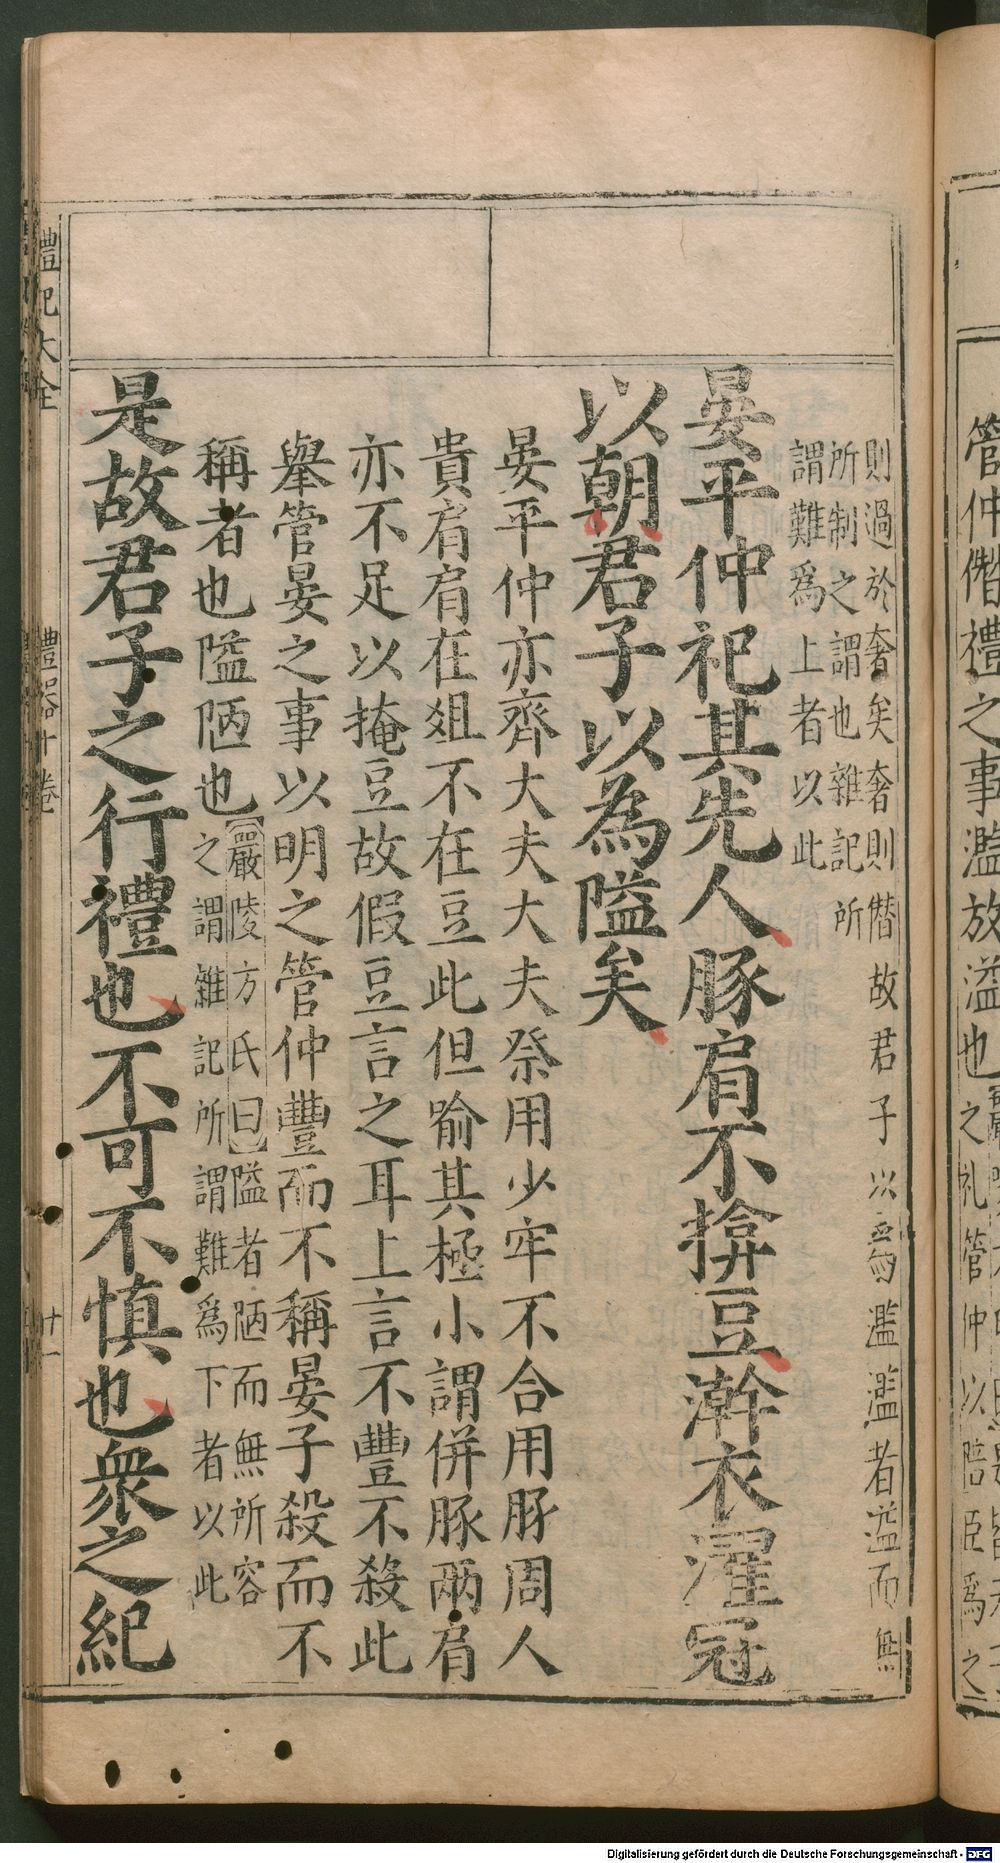 管仲僭禮之事濫放溢也
之礼管仲以陪臣爲之
則過於奢矣奢則僭故君子以爲濫濫者溢而無
所制之謂也雜記所
謂難爲上者以此
晏平仲祀其先人豚肩不揜豆澣衣濯冠
以朝君子以為隘矣
晏平仲亦齊大夫大夫祭用少牢不合用豚周人
貴肩肩在俎不在豆此但喻其極小謂併豚兩肩
亦不足以掩豆故假豆言之耳上言不豐不殺此
舉管晏之事以明之管仲豐而不稱晏子殺而不
稱者也隘陋也
【嚴陵方氏曰】隘者陋而無所容
之謂雜記所謂難為下者以此
是故君子之行禮也不可不慎也衆之紀
禮記大全
禮器十卷
十一
Digitalisierung gefördert durch die Deutsche Forschungsgemeinschaft - DFG